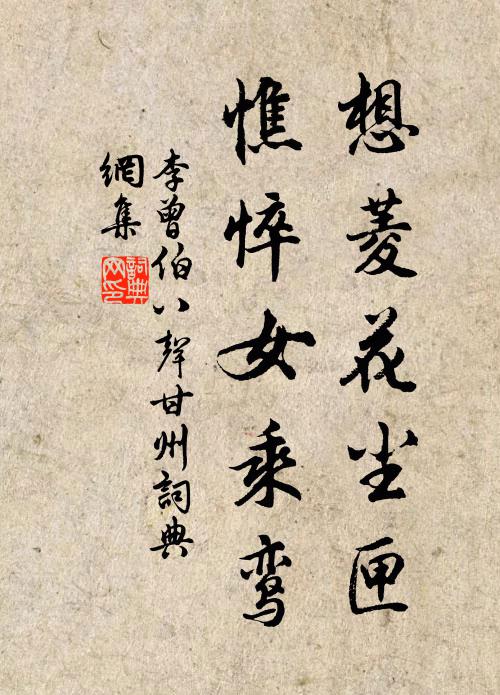 想菱花尘匣
憔悴女乘鸾
李曾伯八聲甘州詞典
網集
詞典
网印